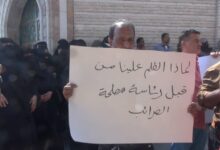 لماذا الظلم علينا من
قبل رئاسة مصلحة
الضرائب